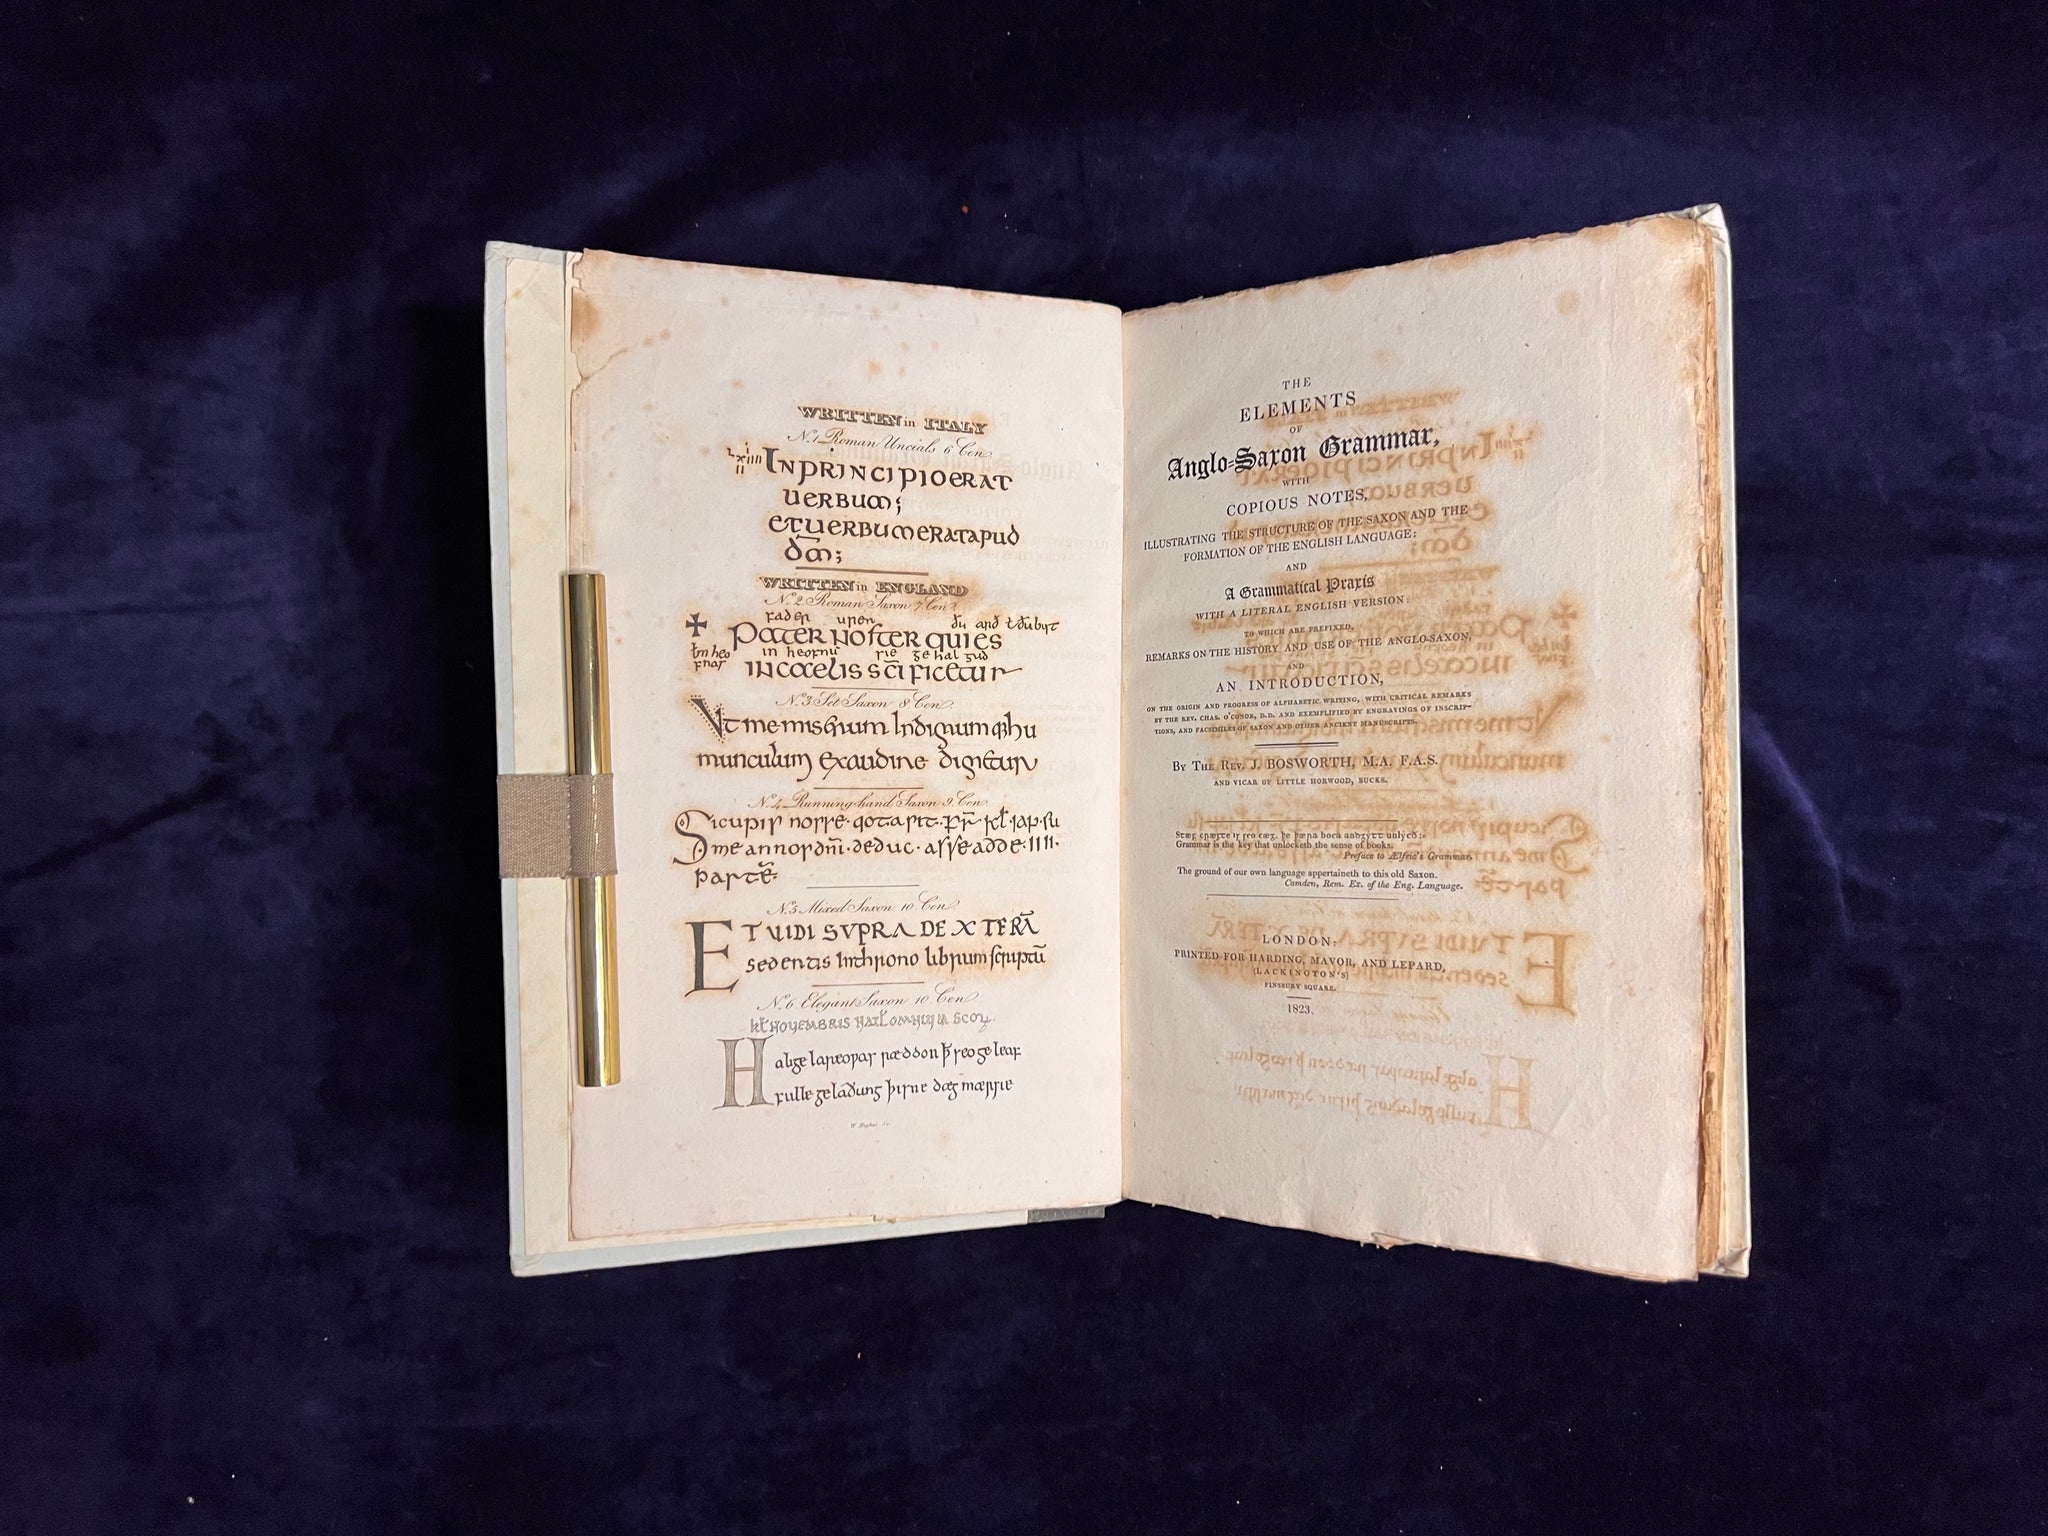 WRITTEN in ITALY
No. 1 Roman Uncials 6 Cen.
INPRINCIPIOERAT
UERBUM;
ETUERBUMERATAPUD
dm̄;
WRITTEN in ENGLAND
No. 2 Roman Saxon 7 Cen.
fader uren
PATER NOSTER QUI ES
in heofnu sie gehalgud
IN CAELIS SC̄IFICETUR
No. 3 Set Saxon 8 Cen.
Ut me miserum Indignum q hu
munculum exaudire dignetur
No. 4 Running-hand Saxon 9 Cen.
Sicupis nosse
me annos dn̄i deduc asse adde IIII
parte
No. 5 Mixed Saxon 10 Cen.
ET VIDI SVPRA DEXTERĀ
sedentis Inthrono librum scriptū
No. 6 Elegant Saxon 10 Cen.
NOVEMBRIS
Halige lareowas ræddon þ seo geleaf
fulle geladung þisne dæg mærsie
THE
ELEMENTS
OF
Anglo-Saxon Grammar,
WITH
COPIOUS NOTES,
ILLUSTRATING THE STRUCTURE OF THE SAXON AND THE
FORMATION OF THE ENGLISH LANGUAGE:
AND
A Grammatical Praxis
WITH A LITERAL ENGLISH VERSION:
TO WHICH ARE PREFIXED,
REMARKS ON THE HISTORY AND USE OF THE ANGLO-SAXON,
AND
AN INTRODUCTION,
ON THE ORIGIN AND PROGRESS OF ALPHABETIC WRITING, WITH CRITICAL REMARKS
BY THE REV. CHAS. O'CONOR, D.D. AND EXEMPLIFIED BY ENGRAVINGS OF INSCRIP-
TIONS, AND FACSIMILES OF SAXON AND OTHER ANCIENT MANUSCRIPTS.
BY THE REV. J. BOSWORTH, M.A. F.A.S.
AND VICAR OF LITTLE HORWOOD, BUCKS.
Stæf cræfte is seo cæg, ðe ðæra boca andgytt unlycð:.
Grammar is the key that unlocketh the sense of books.
Preface to Ælfric's Grammar.
The ground of our own language appertaineth to this old Saxon.
Camden, Rem. Ex. of the Eng. Language.
LONDON:
PRINTED FOR HARDING, MAVOR, AND LEPARD,
(LACKINGTON'S)
FINSBURY SQUARE.
1823.